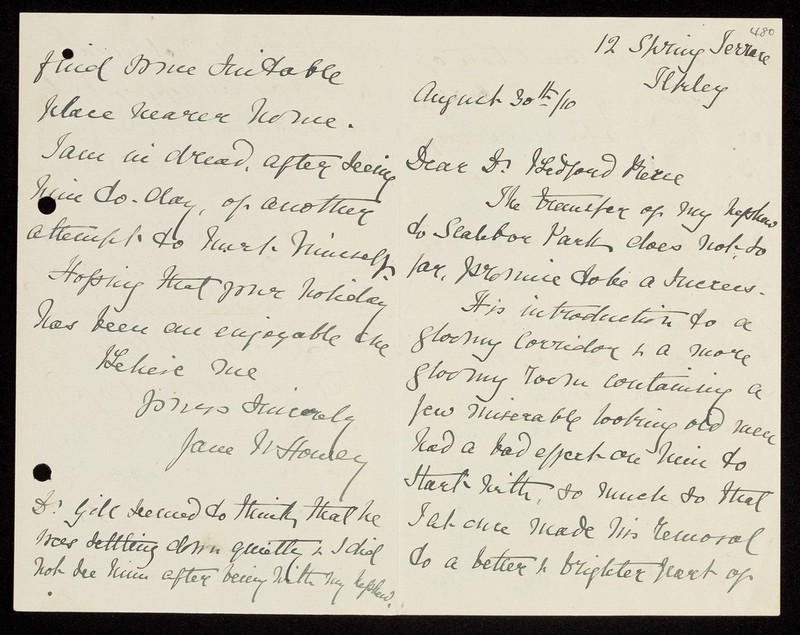 480
12 Spring Terrace
Ilkley
August 30th/10
Dear Dr Bedford Pierce
The transfer of my nephew
to Scalebor Park does not, so
far, promise to be a success.
His introduction to a
gloomy corridor & a more
gloomy room containing a
few miserable looking old men
had a bad effect on him to
start with, so much so that
I at once made his removal
to a better & brighter part of
find some suitable
place nearer home.
I am in dread, after seeing
him to-day, of another
attempt to hurt himself.
Hoping that your holiday
has been an enjoyable one
Believe me
yours sincerely
Jane
Dr Gill seemed to think that he
was settling down quietly & I did
not see him after being with my nephew.